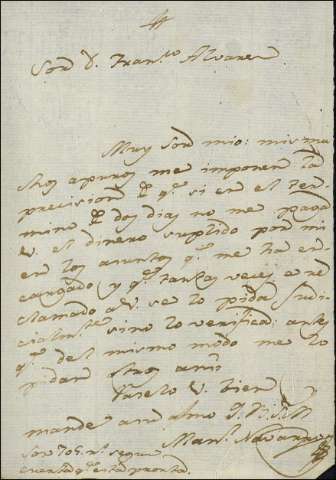 Sor Dn. Franco. Alvarez
Muy Sor mio: mis mu
chos apuros me imponen la
precision de qe. si en el ter
mino de dos dias no me paga
V. el dinero suplido por mi
en los asuntos qe. me ha en
cargado y qe. tantas veces e re
clamado a V. se lo pida Judi
cialmte. sino lo verifica: antes
qe. del mismo modo me lo
pidan
Paselo V. bien
mande a su afmo
Manl. Navarro
cuenta qe. esta pronta.